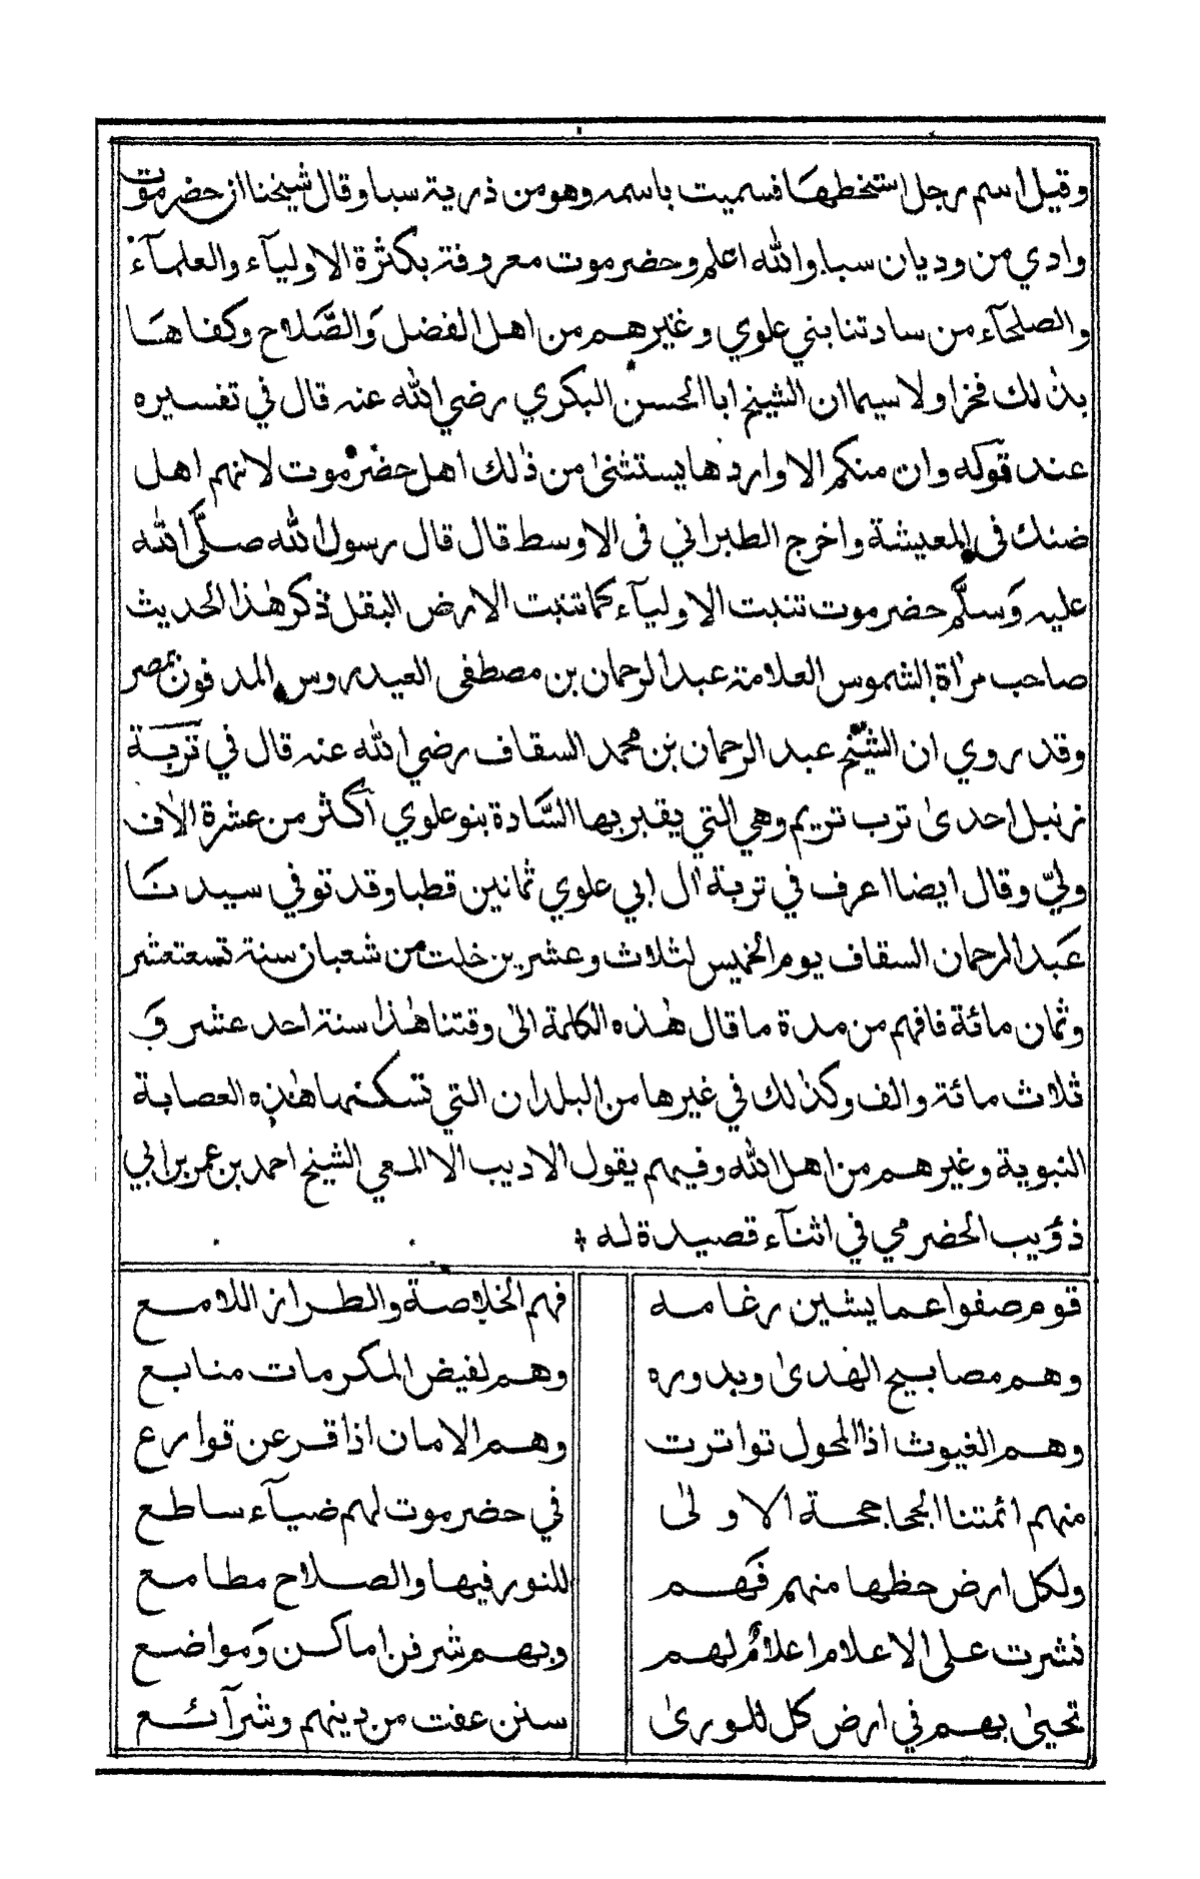 وقيل اسم رجل استخطها فسميت باسمه وهو من ذرية سبا وقال شيخنا ان حضرموت
وادي من وديان سبا والله اعلم وحضرموت معروفة بكثرة الاوليآء والعلمآء
والصلحآء من سادتنا بني علوي وغيرهم من اهل الفضل وَالصَّلاح وكفاهَا
بذلك فخرا ولا سيما ان الشيخ ابا الحسن البكري رضي الله عنه قال في تفسيره
عند قوله وان منكم الا واردها يستثنى من ذٰلك اهل حضرموت لانهم اهل
ضنك فى المعيشة واخرج الطبراني فى الاوسط قال قال رسول الله صلَّى الله
عليه وَسلَّم حضرموت تنبت الاوليآء كما تنبت الارض البقل ذكر هٰذا الحديث
صاحب مرٰاة الشموس العلامة عبد الرحمان بن مصطفى العيدروس المدفون بمصر
وقد روي ان الشيخ عبد الرحمان بن محمد السقاف رضي الله عنه قال في تربَة
زنبل احدىٰ ترب تريم وهي التي يقبر بها السَّادة بنو علوي اكثر من عشرة الاف
وليّ وقال ايضا اعرف في تربة اٰل ابي علوي ثمانين قطبا وقد توفي سيدنَا
عَبد الرحمان السقاف يوم الخميس لثلاث وعشرين خلت من شعبان سنة تسعتعشر
وثمان مائة فافهم من مدة ما قال هٰذه الكلمة الىٰ وقتنا هٰذا سنة احد عشر وَ
ثلاث مائة والف وكذٰلك في غيرها من البلدان التي تسكنها هٰذه العصابة
النبوية وغيرهم من اهل الله وفيهم يقول الاديب الالمعي الشيخ احمد بن عمر بن ابي
ذؤيب الحضرمي في اثنآء قصيدة له
قوم صفوا عما يشين رغامه فهم الخلاصة والطراز اللامع
وهم مصابيح الهدىٰ وبدوره وهم لفيض المكرمات منابع
وهم الغيوث اذا المحول تواترت وهم الامان اذا قرعن قوارع
منهم ائمتنا الجحاجحة الاولىٰ في حضرموت لهم ضيآء ساطع
ولكل ارض حظها منهم فَهم للنور فيها والصلاح مطامع
نشرت على الاعلام اعلامٌ لهم وبهم شرفن اماكن وَمواضع
تحيىٰ بهم في ارض كل للورىٰ سنن عفت من دينهم وشرآئع